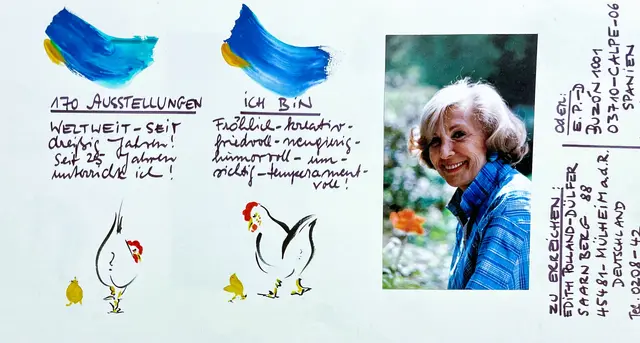 170 AUSSTELLUNGEN
WELTWEIT - SEIT
dreißig Jahren!
Seit 25 Jahren
unterrichte ich!
ICH BIN
Fröhlich - kreativ -
friedvoll - neugierig -
humorvoll - um-
sichtig - temperament-
voll!
ZU ERREICHEN:
EDITH POLLAND-DÜLFER
SAARNBERG 88
45481 - MÜLHEIM a.d.R.
DEUTSCHLAND
Tel. 0208-42
ODER:
E.P.-D
BUZÓN 1001
03710-CALPE-06
SPANIEN